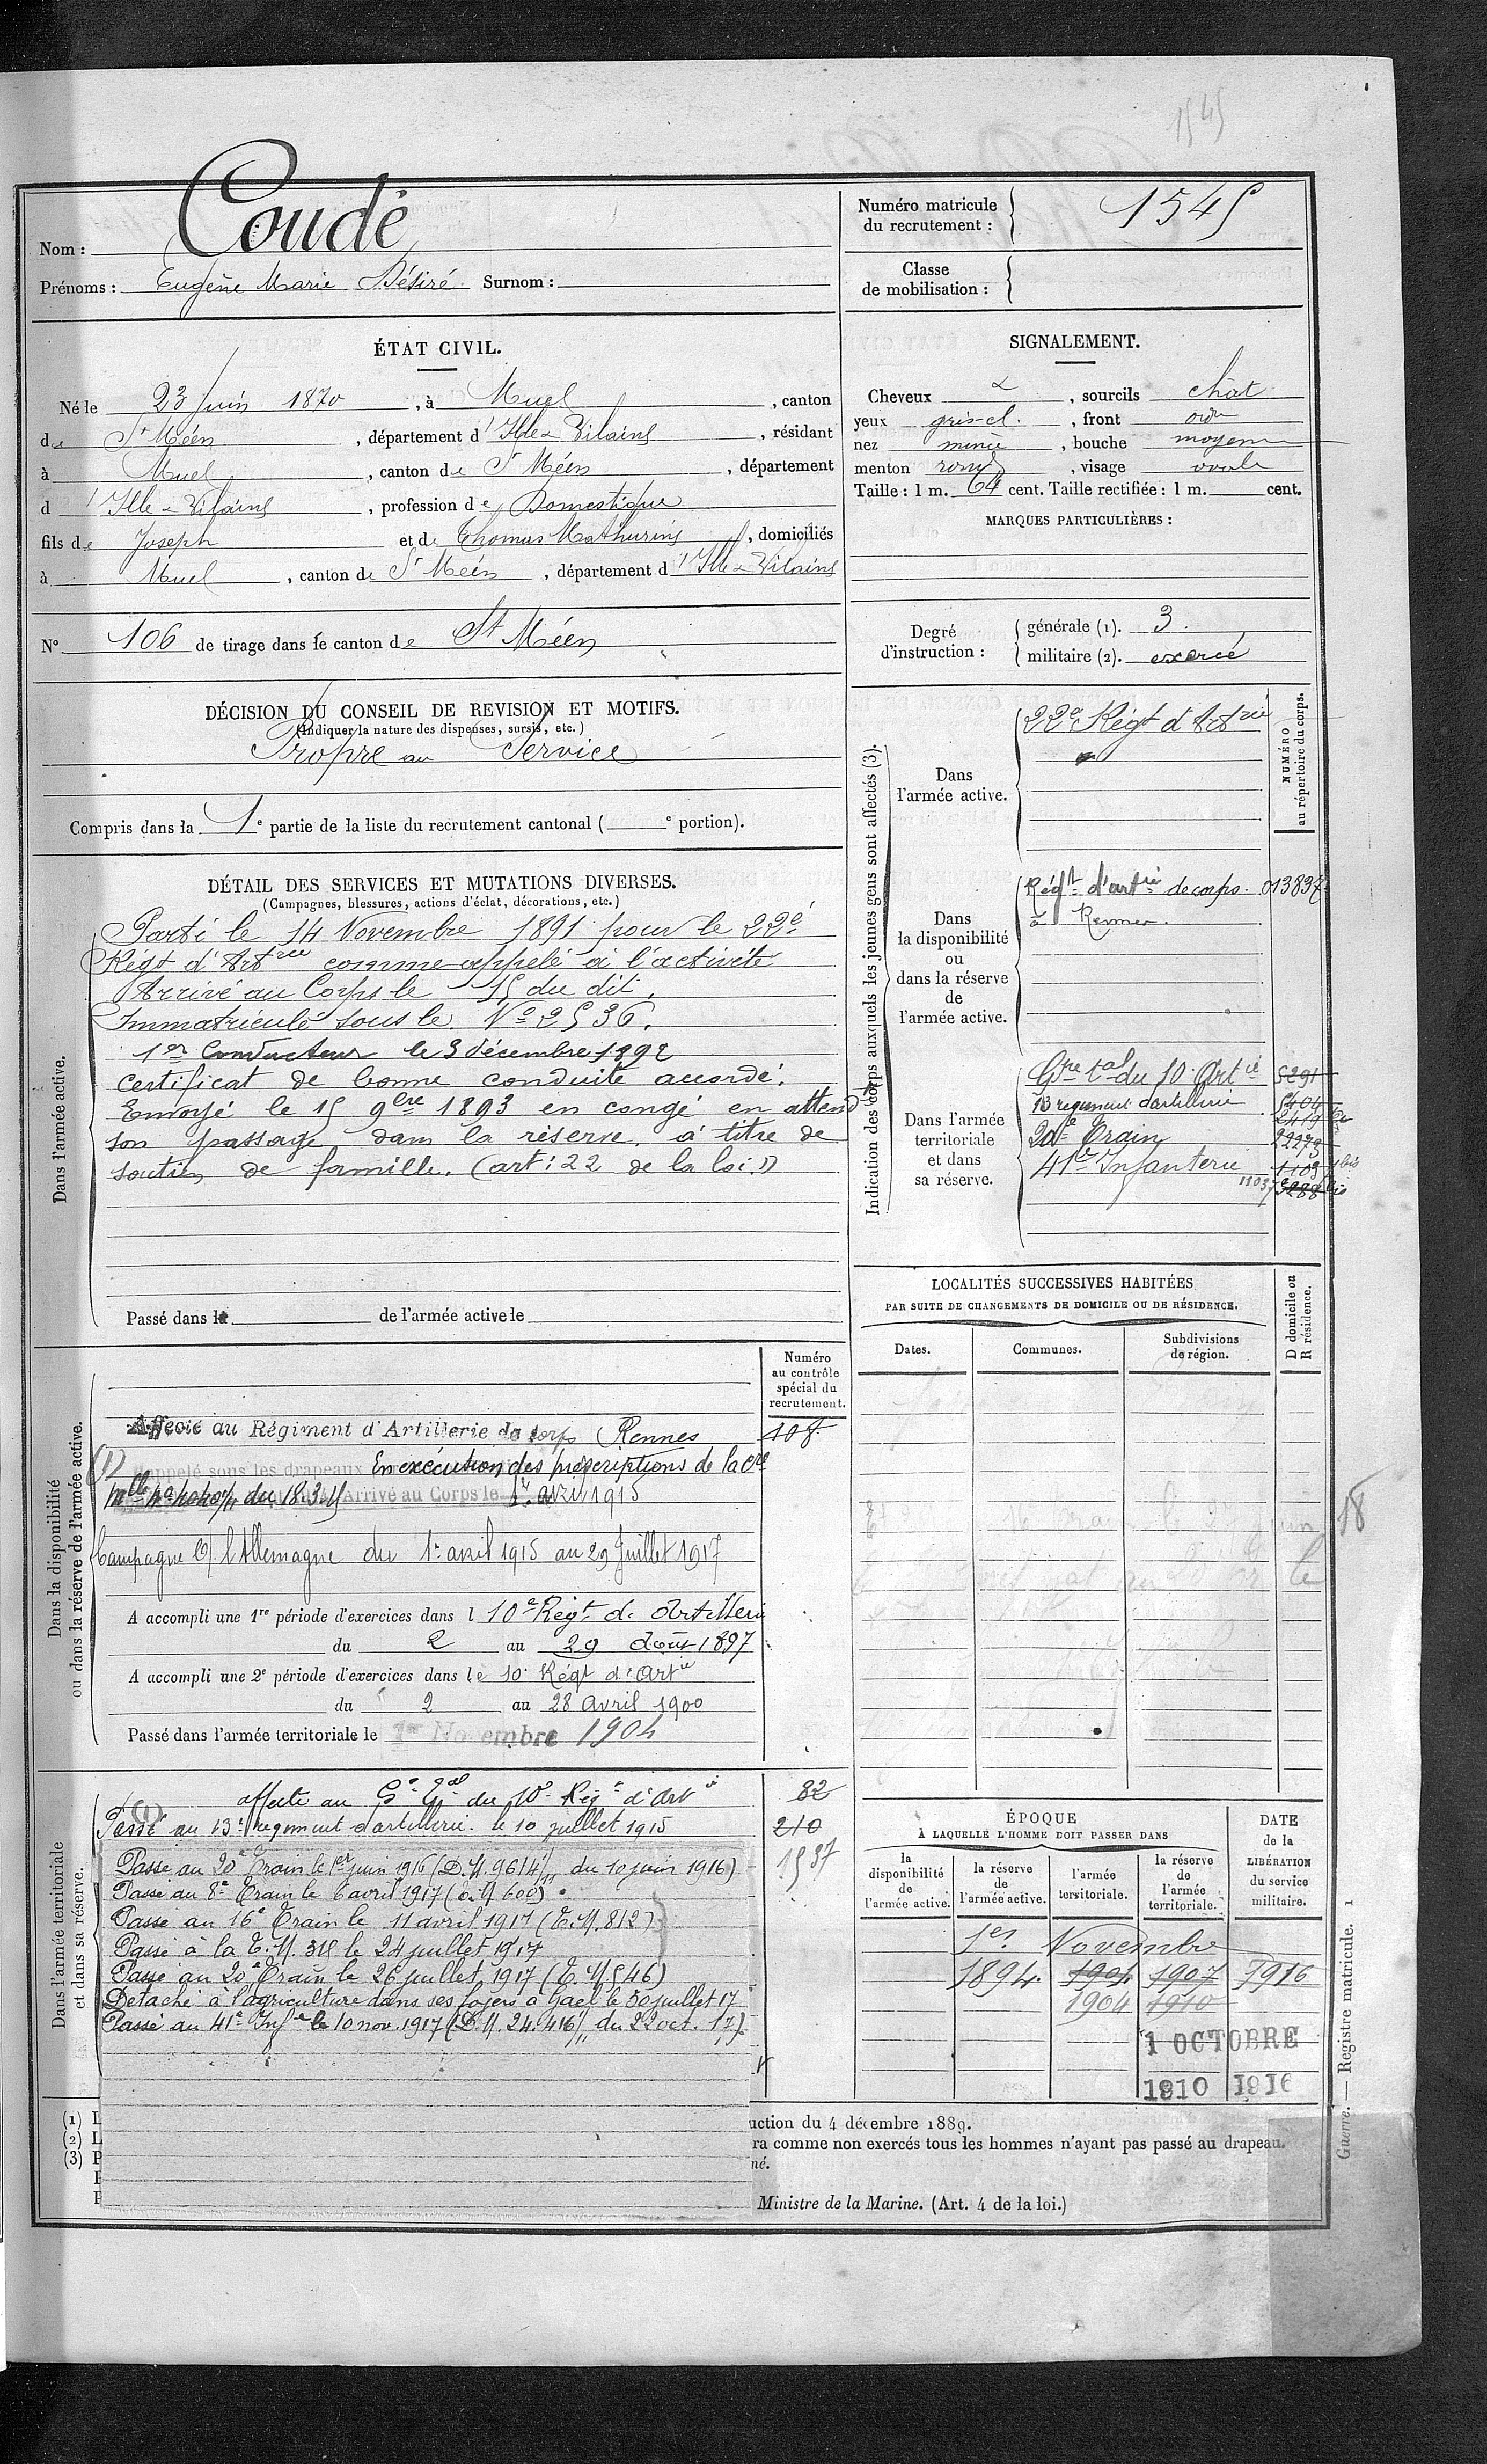 1545
Nom : Coudé
Prénoms : Eugène Marie Désiré Surnom :
Numéro matricule du recrutement : 1545
Classe de mobilisation :
ÉTAT CIVIL.
Né le 23 Juin 1870, à Muel, canton
de St Méen, département d'Ille & Vilaine, résidant
à Muel, canton de St Méen, département
d'Ille & Vilaine, profession de Domestique
fils de Joseph et de Thomas Mathurine, domiciliés
à Muel, canton de St Méen, département d'Ille & Vilaine
N° 106 de tirage dans le canton de St Méen
SIGNALEMENT.
Cheveux &, sourcils chat
yeux gris-cl., front ordre
nez mince, bouche moyenne
menton rond, visage ovale
Taille : 1 m. 64 cent. Taille rectifiée : 1 m. cent.
MARQUES PARTICULIÈRES :
Degré d'instruction :
générale (1). 3.
militaire (2). exercé
DÉCISION DU CONSEIL DE REVISION ET MOTIFS.
(Indiquer la nature des dispenses, sursis, etc.)
Propre au Service
Compris dans la 1e partie de la liste du recrutement cantonal ( e portion).
DÉTAIL DES SERVICES ET MUTATIONS DIVERSES.
(Campagnes, blessures, actions d'éclat, décorations, etc.)
Dans l'armée active.
Parti le 14 Novembre 1891 pour le 22e
Régt d'Artrie comme appelé à l'activité
Arrivé au Corps le 15 du dit.
Immatriculé sous le N° 2536.
1er Conducteur le 3 décembre 1892
Certificat de bonne conduite accordé.
Envoyé le 15 9bre 1893 en congé en attend
son passage dans la réserve à titre de
soutien de famille. (art: 22 de la loi.)
Passé dans la de l'armée active le
Indication des corps auxquels les jeunes gens sont affectés (3).
NUMÉRO au répertoire du corps.
Dans l'armée active.
22e Régt d'Artrie
Dans la disponibilité ou dans la réserve de l'armée active.
Régt d'artrie de corps. 013837
à Rennes.
Dans l'armée territoriale et dans sa réserve.
Gpe tal du 10e Artie 5291
13 régiment d'artillerie 5404
2419
20e Train 22279
41e Infanterie 1109
11037 3288 bis
LOCALITÉS SUCCESSIVES HABITÉES
PAR SUITE DE CHANGEMENTS DE DOMICILE OU DE RÉSIDENCE.
Dates. Communes. Subdivisions de région.
D domicile ou R résidence.
Dans la disponibilité ou dans la réserve de l'armée active.
Numéro au contrôle spécial du recrutement.
Affecté au Régiment d'Artillerie de corps Rennes 108
(1) Rappelé sous les drapeaux En exécution des prescriptions de la Cre
Mlle No 4040 1/11 du 18.3.15 Arrivé au Corps le 1er avril 1915
Campagne c/ l'Allemagne du 1er avril 1915 au 29 Juillet 1917
A accompli une 1re période d'exercices dans l 10e Régt d'Artillerie
du 2 au 29 Août 1897
A accompli une 2e période d'exercices dans le 10e Régt d'Artie
du 2 au 28 Avril 1900
Passé dans l'armée territoriale le 1er Novembre 1904
18
Dans l'armée territoriale et dans sa réserve.
affecté au Ge Tal du 10e Régt d'Artie 82
(1) Passé au 13e régiment d'artillerie. le 10 juillet 1915 210
Passé au 20e Train le 1er juin 1916 (D.M. 9614/11 du 10 juin 1916) 1537
Passé au 8e Train le 6 avril 1917 (T.M. 600)
Passé au 16e Train le 11 avril 1917 (T.M. 812)
Passé à la T.M. 315 le 24 juillet 1917
Passé au 20e Train le 26 juillet 1917 (T.M 546)
Détaché à l'agriculture dans ses foyers à Gaël le 30 juillet 17
Passé au 41e Infie le 10 nov. 1917 (D.M. 24.416/11 du 22 oct. 17)
ÉPOQUE
À LAQUELLE L'HOMME DOIT PASSER DANS
la disponibilité de l'armée active.
la réserve de l'armée active.
l'armée territoriale.
la réserve de l'armée territoriale.
DATE de la LIBÉRATION du service militaire.
1er Novembre
1894. 1901 1907 1916
1904 1910
1 OCTOBRE
1910 1916
(1) L
(2) L
(3) P
uction du 4 décembre 1889.
ra comme non exercés tous les hommes n'ayant pas passé au drapeau.
né.
Ministre de la Marine. (Art. 4 de la loi.)
Guerre. — Registre matricule. 1